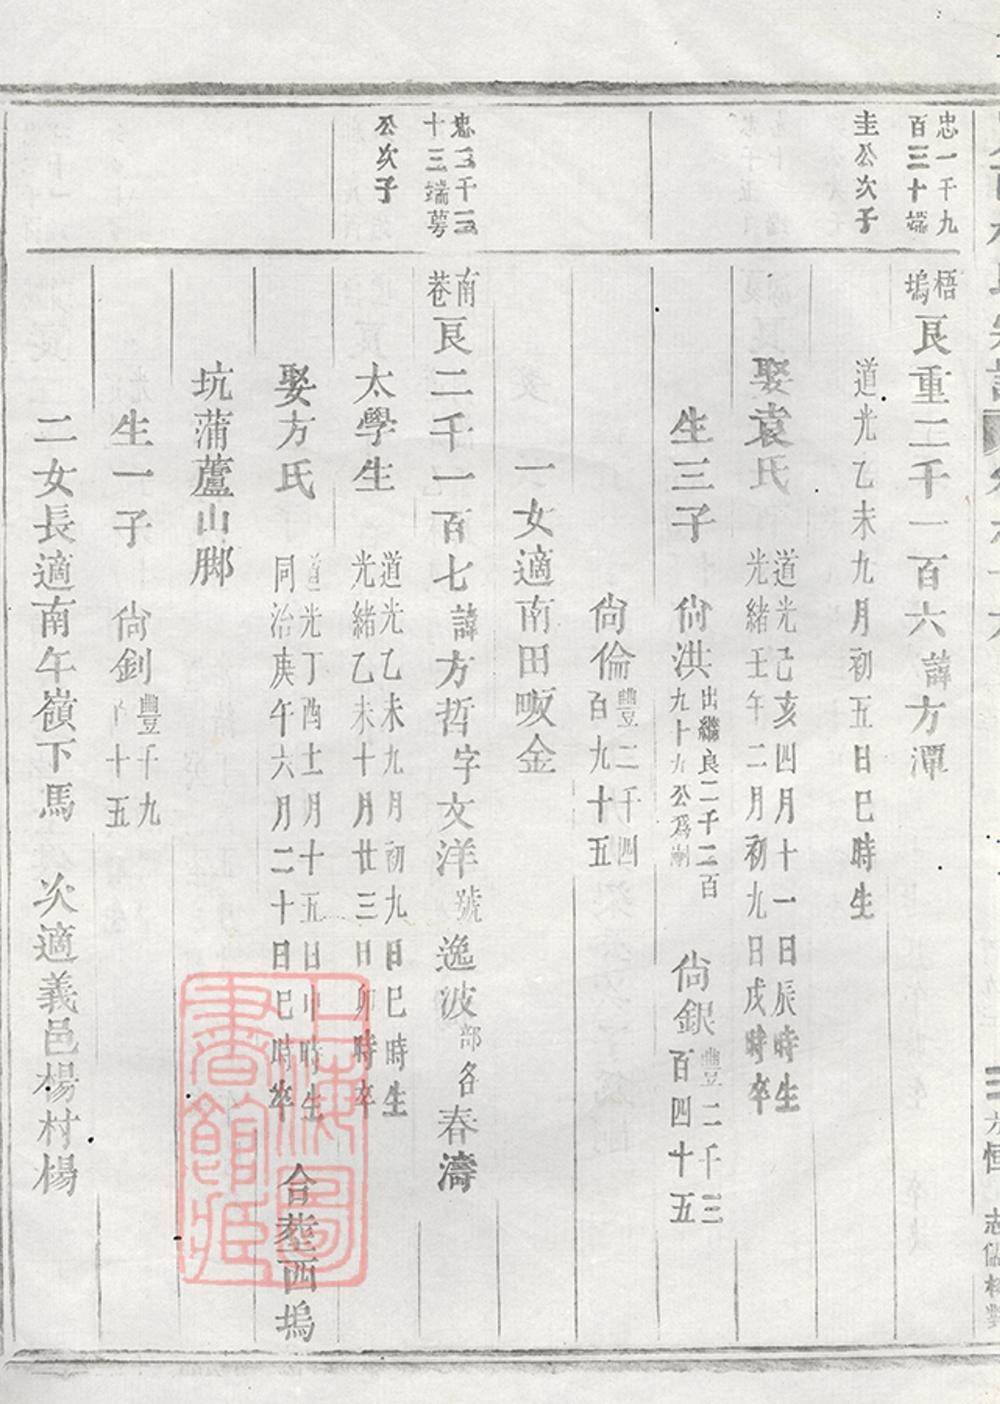 忠一千九
百三十端
圭公次子
梧塢良重二千一百六諱方潭
道光乙未九月初五日巳時生
娶袁氏 道光己亥四月十一日辰時生
光緒壬午二月初九日戌時卒
生三子 尙洪 出繼良二千二百
九十九公爲嗣 尙銀 豐二千三
百四十五
尙倫 豐二千四
百九十五
一女適南田畈金
忠三千三
十三端蕚
公次子
南巷良二千一百七諱方哲字文洋號逸波部名春濤
太學生 道光乙未九月初九日巳時生
光緒乙未十月廿三日卯時卒
娶方氏 道光丁酉十一月十五日申時生
同治庚午六月二十日巳時卒 合葬西塢
坑蒲蘆山脚
生一子 尙釗 豐千九
十五
二女長適南午嶺下馬 次適義邑楊村楊
上海圖書館藏